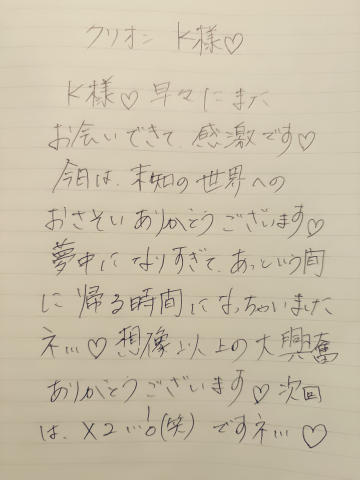 クリオン K様♡
K様♡早々にまた
お会いできて、感激です♡
今日は、未知の世界への
おさそいありがとうございます♡
夢中になりすぎて、あっという間
に帰る時間になっちゃいました
ネ…♡想像以上の大興奮
ありがとうございます♡次回
は、×2…!。(笑)ですネ…♡